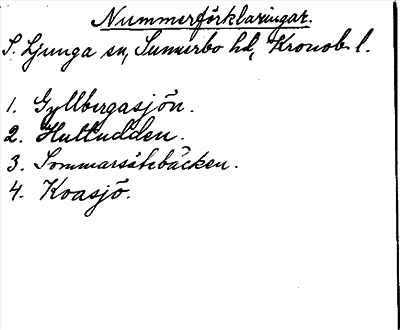 Nummerförklaringar.
S. Ljunga sn, Sunnerbo hd, Kronob. l.
1. Gyllbergasjön.
2. Hultudden.
3. Sommarsätebäcken.
4. Koasjö.